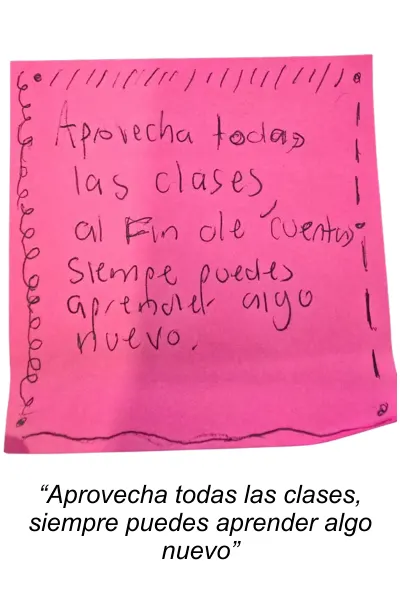 Aprovecha todas
las clases,
al Fin de cuentas
siempre puedes
aprender algo
nuevo.
“Aprovecha todas las clases,
siempre puedes aprender algo
nuevo”